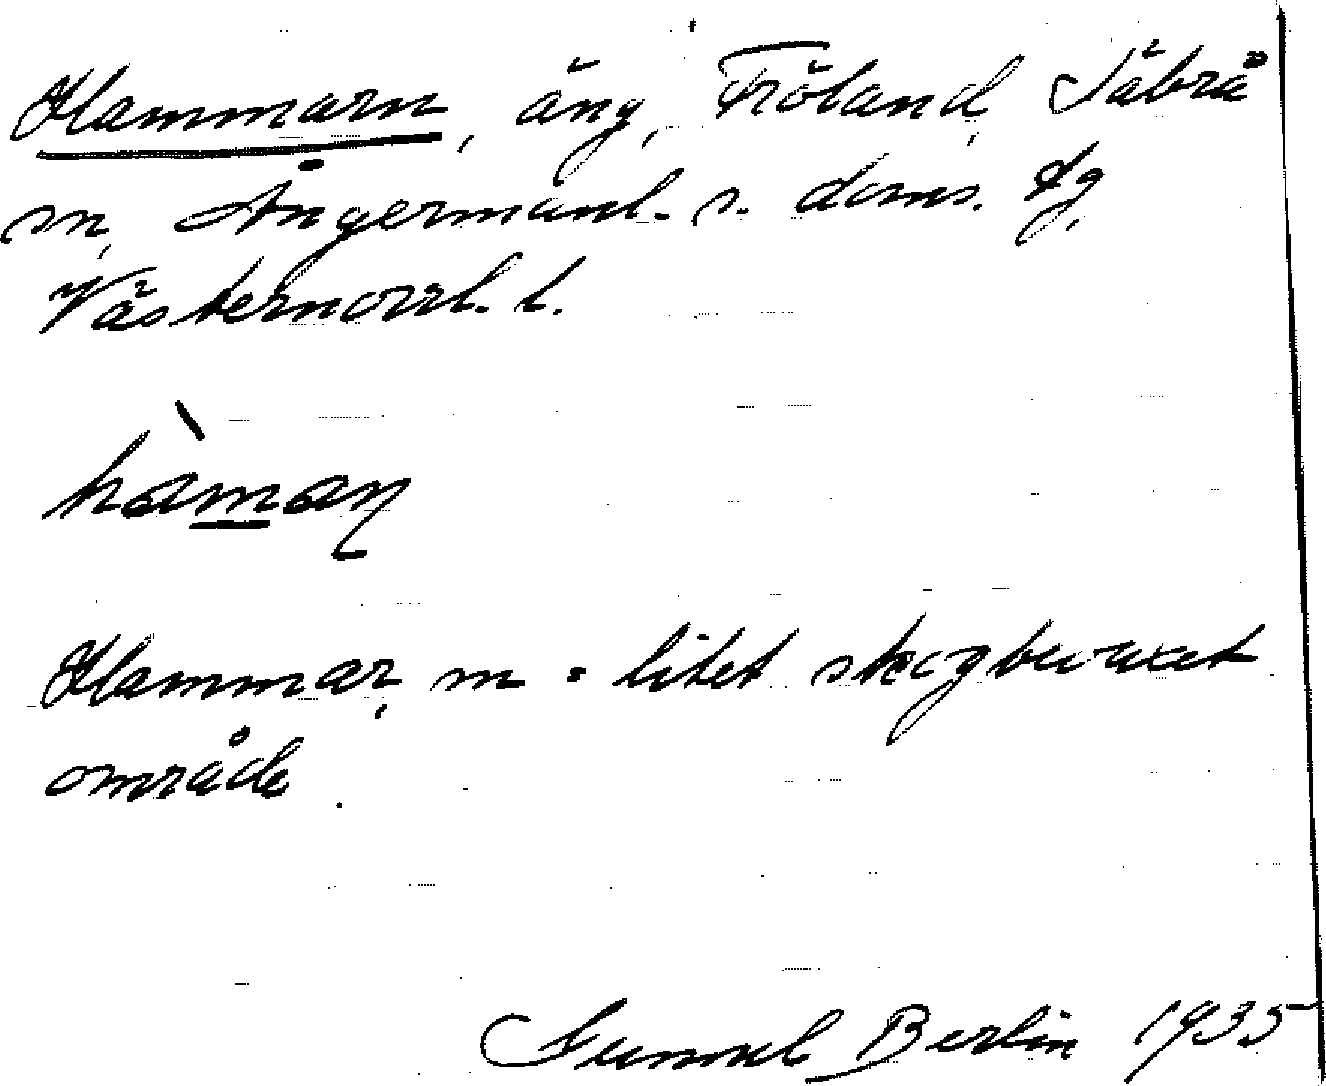 Hammarn, äng, Fröland, Säbrå
sn, Ångermanl. s. doms. tg,
Västernorrl. l.
hàmaņ
Hammar, m = litet skogbevuxet
område.
Gunnel Berlin 1935